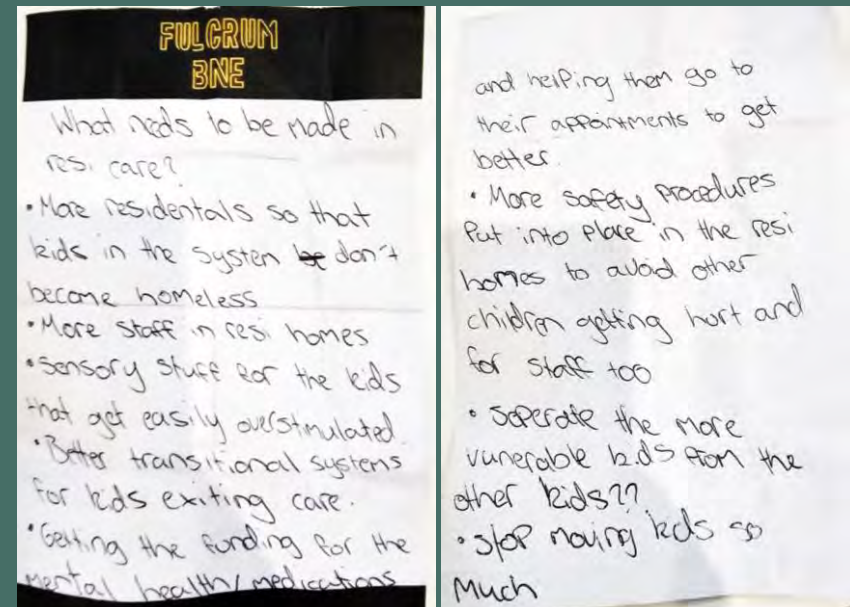 FULCRUM
BNE
What needs to be made in
resi care?
• More residentals so that
kids in the system be don't
become homeless
• More staff in resi homes
• Sensory stuff for the kids
that get easily overstimulated.
• Better transitional systems
for kids exiting care.
• Getting the funding for the
mental health/medications
and helping them go to
their appointments to get
better.
• More safety procedures
Put into place in the resi
homes to avoid other
children getting hurt and
for staff too
• seperate the more
vunerable kids from the
other kids??
• stop moving kids so
Much